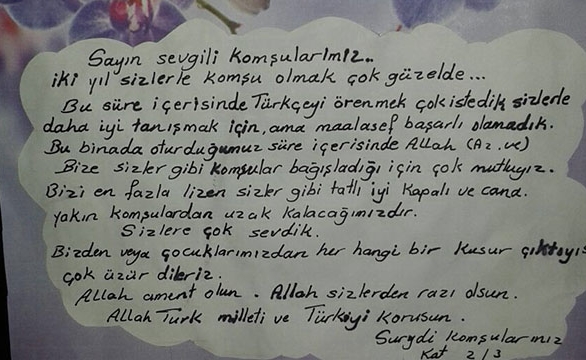 Sayın sevgili komşularımız..
iki yıl sizlerle komşu olmak çok güzelde...
Bu süre içerisinde Türkçeyi örenmek çok istedik sizlerle
daha iyi tanışmak için, ama maalasef başarlı olamadık.
Bu binada oturduğumuz süre içerisinde Allah (Az.ve)
Bize sizler gibi komşular bağışladığı için çok mutluyız.
Bizi en fazla üzen sizler gibi tatlı iyi kapalı ve cana.
yakın komşulardan uzak kalacağımızdır.
Sizlere çok sevdik.
Bizden veya çocuklarımızdan her hangi bir kusur çıktoyıs
çok üzür dileriz.
Allah ament olun. Allah sizlerden razı olsun.
Allah Turk milleti ve Türkiyi korusun.
Surydi komşularınız
Kat 2/3